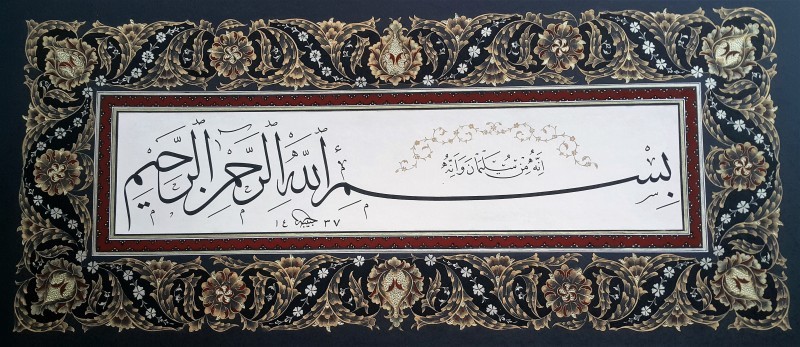 إِنَّهُ مِنْ سُلَيْمَانَ وَإِنَّهُ
بِسْمِ اللّٰهِ الرَّحْمٰنِ الرَّحِيمِ
١٤٣٧